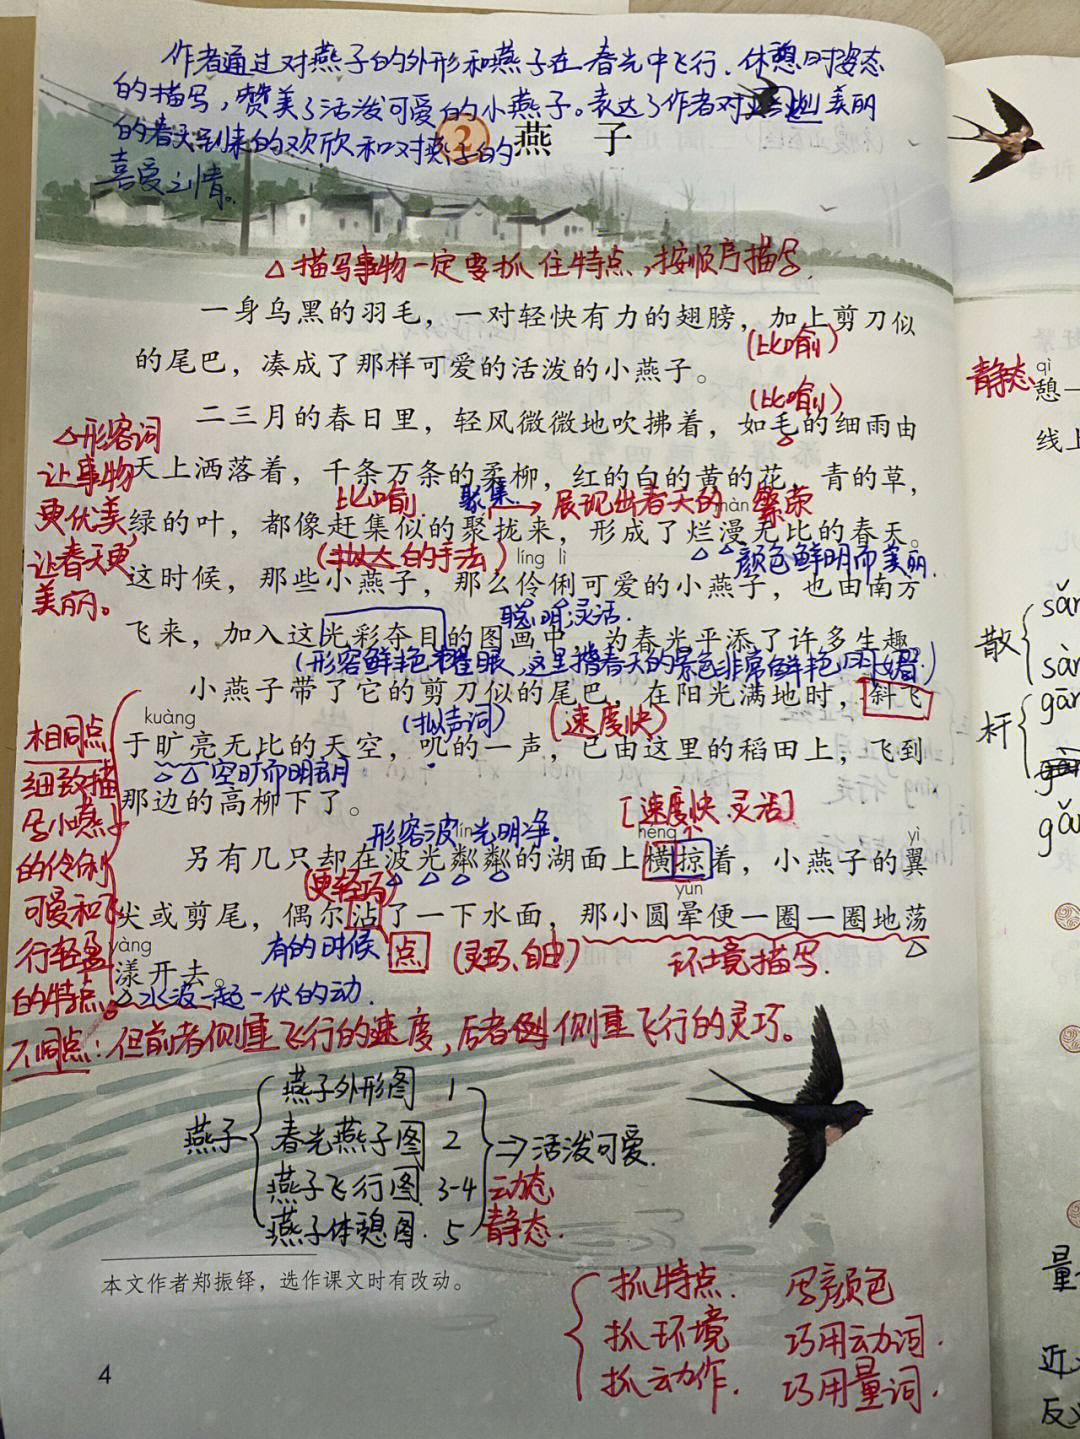 作者通过对燕子的外形和燕子在春光中飞行、休憩时姿态
的描写，赞美了活泼可爱的小燕子。表达了作者对 美丽
的春天到来的欢欣和对燕子的
喜爱之情。
2 燕 子
△描写事物一定要抓住特点，按顺序描写.
一身乌黑的羽毛，一对轻快有力的翅膀，加上剪刀似
(比喻)
的尾巴，凑成了那样可爱的活泼的小燕子。
(比喻)
二三月的春日里，轻风微微地吹拂着，如毛的细雨由
△形容词
让事物
更优美，
让春天更
美丽。
天上洒落着，千条万条的柔柳，红的白的黄的花，青的草，
比喻. 聚集. → 展现出春天的繁荣
màn
绿的叶，都像赶集似的聚拢来，形成了烂漫无比的春天。
(拟人的手法) líng lì 颜色鲜明而美丽.
这时候，那些小燕子，那么伶俐可爱的小燕子，也由南方
聪明灵活.
飞来，加入这光彩夺目的图画中，为春光平添了许多生趣。
(形容鲜艳耀眼，这里指春天的景色非常鲜艳 )
小燕子带了它的剪刀似的尾巴，在阳光满地时，斜飞
kuàng (拟声词) (速度快)
于旷亮无比的天空，叽的一声，已由这里的稻田上，飞到
空旷而明朗
那边的高柳下了。
[速度快.灵活]
形容波光明净. lín héng yì
另有几只却在波光粼粼的湖面上横掠着，小燕子的翼
(更轻巧) yùn
尖或剪尾，偶尔沾了一下水面，那小圆晕便一圈一圈地荡
有的时候 点 (灵巧、自由) 环境描写.
yàng
漾开去。
△水波一起一伏的动.
相同点
细致描
写小燕子
的伶俐
可爱和飞
行轻盈
的特点。
不同点：但前者侧重飞行的速度，后者侧重飞行的灵巧。
燕子
燕子外形图 1
春光燕子图 2
燕子飞行图. 3-4 动态
燕子休憩图. 5 静态.
⇒活泼可爱.
本文作者郑振铎，选作课文时有改动。
抓特点. 写颜色
抓环境 巧用动词.
抓动作. 巧用量词.
4
静态
qì
憩一
线上
散
杆
gān
量
近
反